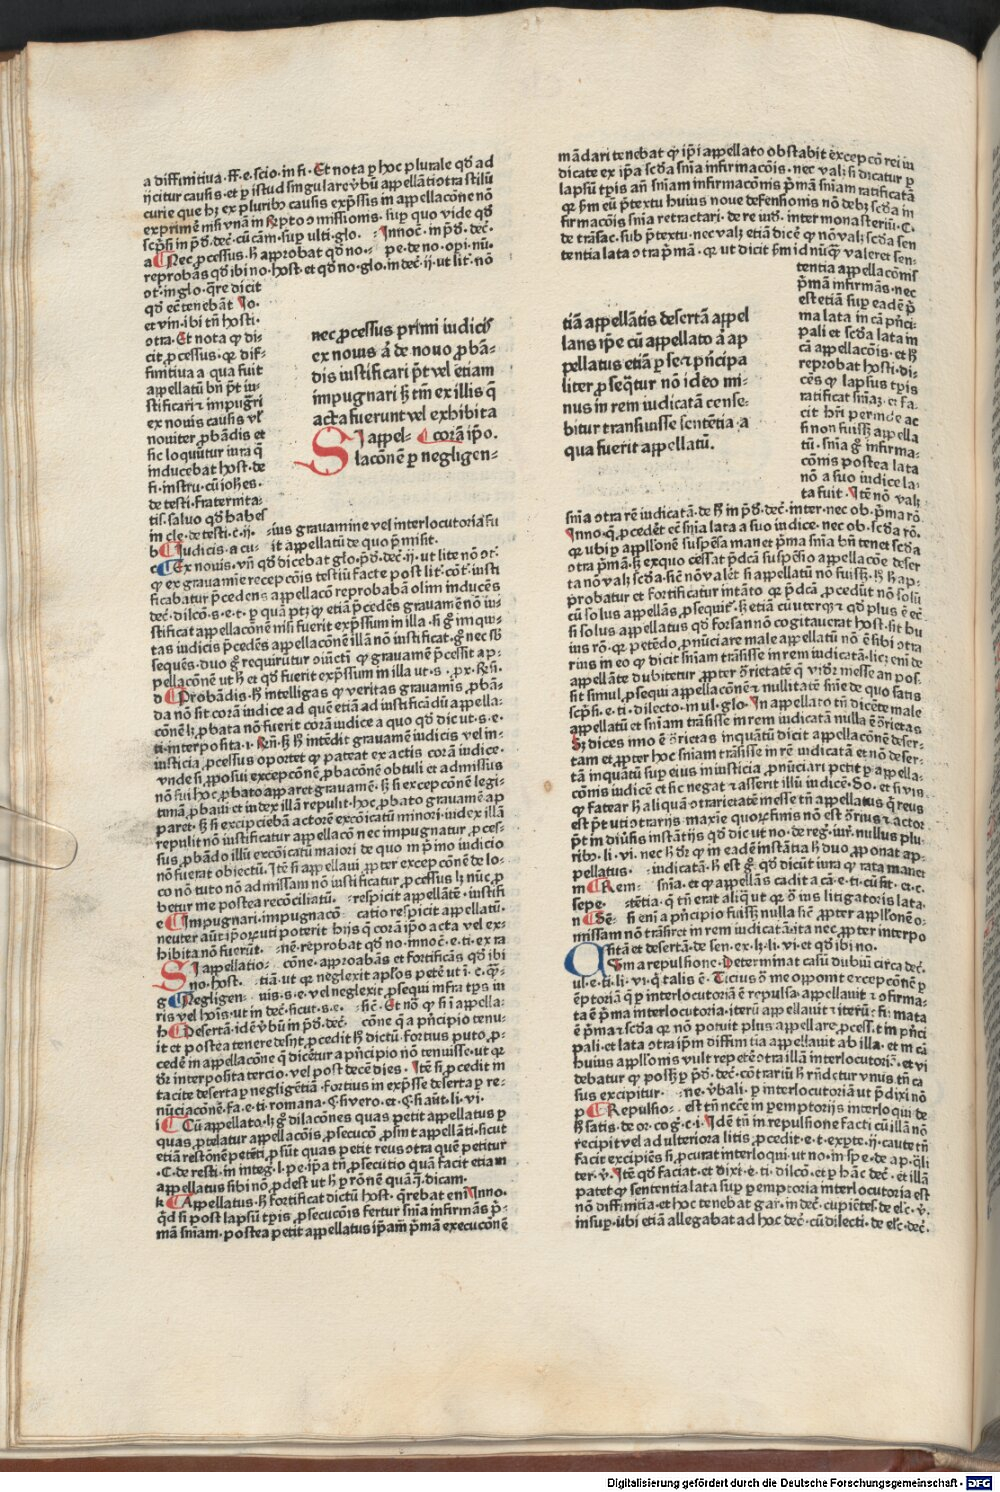 a diffinitiua. ff. e. scio. in fi. Et nota ꝑ hoc plurale qd̄ ad
ijcitur causis. et ꝑ istud singulare v̄bū appellati ↄtra stilū
curie que hꝫ ex pluribꝰ causis exp̄ssis in appellacōne nō
exprimē nisi vnam in
scp̄si in p̄d. dec̄. cū cām. suꝑ ulti. glo. Innoc̄. in p̄d. dec̄.
a Nec ꝓcessus. ħ approbat qd̄ no. pe. de no. opi. nū.
reprobās qd̄ ibi no. host. et qd̄ no. glo. in dec̄. ij. ut lit̄. nō
ot̄. in glo. q̄re dicit
qd̄ ec̄ tenebāt Io.
et vin. ibi tn̄ hosti.
ↄtra. Et nota ꝙ di-
cit ꝓcessus. ꝙ dif-
finitiua a qua fuit
appellatū bn̄ p̄t iu-
stificari ⁊ impugn̄ri
ex nouis causis vl̄
nouiter ꝓbādis et
sic loquūtur iura q̄
inducebat host. de
fi. instru. cū ioh̄es.
de testi. fraternita-
tis. saluo qd̄ habes
in cle. de testi. c̄. ij.
nec ꝓcessus primi iudicis
ex nouis ā de nouo ꝓbā-
dis iustificari p̄t vel etiam
impugnari sꝫ tm̄ ex illis q̄
acta fuerunt vel exhibita
SI appel- corā ip̄o.
lacōnē ꝑ negligen-
ius grauamine vel interlocutoria fu
b Iudicis. a cu- it appellatū de quo p̄misit.
c Ex nouis. vn̄ qd̄ dicebat glo. p̄d. dec̄. ij. ut lite nō ↄt̄.
ꝙ ex grauamīe recepcōis testiū facte post lit̄. cōt̄. iusti
ficabatur p̄cedens appellacō reprobabā olim inducēs
dec̄. dilcō. s. e. t. ꝑ quā ptꝫ ꝙ etiā p̄cedēs grauamē nō iu-
stificat appellacōnē nisi fuerit exp̄ssum in illa. si g̊ iniqui-
tas iudicis p̄cedēs appellacōnē illā nō iustificat. g̊ nec sb̄
sequēs. duo g̊ requirūtur ↄiūcti ꝙ grauamē p̄cessit ap-
pellacōnē ut ħ et qd̄ fuerit exp̄ssum in illa ut. s.
d Probādis. ħ intelligas ꝙ veritas grauamīs ꝓbā-
da nō sit corā iudice ad quē etiā ad iustificādū appella-
cōnē lꝫ ꝓbata nō fuerit corā iudice a quo qd̄ dic ut. s. e.
ti. interposita. i. sꝫ ħ intēdit grauamē iudicis vel in-
iusticia ꝓcessus oportet ꝙ pateat ex actis corā iudice.
vnde si ꝓposui excepcōnē ꝓbacōnē obtuli et admissus
nō fui hoc ꝓbato apparet grauamē. sꝫ si excepcōnē legi-
timā ꝓbaui et iudex illā repulit. hoc ꝓbato grauamē ap
paret. sꝫ si excipiebā actorē excōicatū minori. iudex illā
repulit nō iustificatur appellacō nec impugnatur ꝓces-
sus ꝓbādo illū excōicatū maiori de quo in p̄mo iudicio
nō fuerat obiectū. Itē si appellaui ꝓpter excepcōnē de lo-
co nō tuto nō admissam nō iustificatur ꝓcessus lꝫ nūc ꝓ
betur me postea recōciliatū. respicit appellātē. iustifi
e Impugnari. impugnacō catio respicit appellatū.
neuter aūt ip̄oꝝ uti poterit hijs q̄ corā ip̄o acta vel ex-
hibita nō fuerūt. nē. reprobat qd̄ no. innoc̄. e. ti. ex ra
SI appellatio- cōne. approbās et fortificās qd̄ ibi
no. host. tiā. ut qꝛ neglexit aplōs petē ut ī. e. q̄-
g Negligen- uis. s. e. vel neglexit ꝓsequi infra tp̄s iu
ris vel hoīs. ut in dec̄. sicut. s. e. sic̄. Et nō ꝙ si ī appella-
h Desertā. idē v̄bū in p̄d. dec̄. cōne q̄ a p̄ncipio tenu-
it et postea tenere desijt. ꝓcedit ħ dictū. fortius puto ꝓ-
cedē in appellacōne q̄ dicetur a p̄ncipio nō tenuisse. ut qꝛ
dꝛ interposita tercio. vel post decē dies. Itē si ꝓcedit in
tacite deserta ꝑ negligētiā. fortius in exp̄sse deserta ꝑ re-
nūciacōnē. fa. e. ti. romana. §. si vero. et §. si aūt. li. vi.
i Cū appellato. lꝫ g̊ dilacōnes quas petit appellatus ꝑ
quas ꝓtelatur appellacōis ꝓsecucō ꝓsint appellāti. sicut
etiā restōnē petēti ꝓsūt quas petit reus ↄtra quē petitur
.C. de resti. in integ. l. pe. ip̄a tn̄ ꝓsecutio quā facit etiam
appellatus sibi nō ꝓdest ut ħ ꝑ rōnē quāq̄. dicam.
k Appellatus. ħ fortificat dictū host. q̄rebat enī Inno.
qd̄ si post lapsū tp̄is ꝓsecucōis fertur sn̄ia infirmās p̄-
mā sniam. postea petit appellatus ip̄am p̄mā execucōnē
mādari tenebat ꝙ ip̄i appellato obstabit excepcō rei iu
dicate ex ip̄a scd̄a sn̄ia infirmacōis. nec valꝫ si dicatur ꝑ
lapsū tp̄is an̄ sniam infirmacōnis p̄mā sniam ratificatā
qꝛ ꝑm eū p̄textu huius noue defensionis nō debꝫ scd̄a in
firmacōis sn̄ia retractari. de re iud̄. inter monasteriū. C.
de trāsac. sub p̄textu. nec valꝫ etiā dicē ꝙ nō valꝫ scd̄a sen
tentia lata ↄtra p̄mā. qꝛ ut dicit ꝑm id nūq̄ valeret sen-
tentia appellacōnis
p̄mā infirmās. nec
est etiā suꝑ eadē p̄
ma lata in cā p̄nci-
pali et scd̄a lata in
cā appellacōis. et ħ
reprobat hosti. di-
cēs ꝙ lapsus tp̄is
ratificat sn̄iaꝫ. et fa-
cit hꝛ̄i perinde ac
si non fuissꝫ appella
tū. sn̄ia g̊ infirma-
cōnis postea lata
nō a suo iudice la-
ta fuit. Itē nō valꝫ
tiā appellātis desertā appel
lans ip̄e cū appellato ā ap
pellatus etiā ꝑ se ⁊ p̄ncipa
liter ꝓseq̄tur nō ideo mi-
nus in rem iudicatā cense-
bitur transiuisse sentētia. a
qua fuerit appellatū.
sn̄ia ↄtra rē iudicatā. de ħ in p̄d. dec̄. inter. nec ob. p̄ma rō.
Inno. q̄ ꝓcedēt ec̄ sn̄ia lata a suo iudice. nec ob. scd̄a rō.
qꝛ ubi ꝑ appllōnē suspēsa manet p̄ma sn̄ia bn̄ tenet scd̄a
ↄtra p̄mā. sꝫ exquo cessat p̄dcā suspēsio appellacōe deser
ta nō valꝫ scd̄a. sic̄ nō valēt si appellatū nō fuissꝫ. ħ ħ ap-
probatur et fortificatur intāto qꝛ p̄dcā ꝓcedūt nō solū
cū solus appellās ꝓsequit̄. sꝫ etiā cū uterqꝫ ⁊ qd̄ plus ē ec̄
si solus appellatus qd̄ forsan nō cogitauerat host. sit hu
ius rō. qꝛ petēdo ꝓnūciare male appellatū nō ē sibi ↄtra
rius in eo ꝙ dicit sniam trāsisse in rem iudicatā. licꝫ enī de
appellāte dubitetur ꝓpter ↄ̄rietatē q̄ vid̄r inesse an pos-
sit simul ꝓsequi appellacōnē ⁊ nullitatē sn̄ie de quo satis
scp̄si. e. ti. dilecto. in ul. glo. In appellato tn̄ dicēte male
appellatū et sniam trāsisse in rem iudicatā nulla ē ↄ̄rietas
Sꝫ dices īmo ē ↄ̄rietas inquātū dicit appellacōnē deser-
tam et ꝓpter hoc sniam trāsisse in rē iudicatā et nō deser-
tā inquātū suꝑ eius iniusticia ꝓnūciari petit ꝑ appella-
cōnis iudicē et sic negat ⁊ asserit illū iudicē. So. et si vis
ꝙ fatear ħ aliquā ↄtrarietatē inesse tn̄ appellatus q̄ reus
est p̄t uti ↄtrarijs. maxīe quoꝝ finis nō est ↄ̄rius ⁊ actor
p̄t in diūsis instātijs qd̄ dic ut no. de reg. iur̄. nullus plu-
ribꝰ. li. vi. nec ħ dꝛ ꝙ in eadē instātia ħ duo ꝓponat ap-
pellatus. iudicatā. ħ est g̊ qd̄ dicūt iura ꝙ rata manet
m Rem- sn̄ia. et ꝙ appellās cadit a cā. e. ti. cū sit. et. c.
sepe. tētia. q̄ tn̄ erat aliq̄ ut qꝛ ō ius litigatoris lata.
n Sē- si enī a p̄ncipio fuissꝫ nulla sic̄ ꝓpter appllōnē o-
missam nō trāsiret in rem iudicatā. ita nec ꝓpter interpo
sitā et desertā. de sen. ex. lꝫ. li. vi. et qd̄ ibi no.
A Sm̄a repulsione. Determinat casū dubiū circa dec̄.
ul. e. ti. li. vi. q̄ talis ē. Ticius ō me opponit excepcōnē ꝑ
ēptoriā q̄ ꝑ interlocutoriā ē repulsa. appellauit ⁊ ↄfirma-
ta ē p̄ma interlocutoria. iterū appellauit ⁊ iterū ↄfirmata
ē p̄ma ⁊ scd̄a qꝛ nō potuit plus appellare ꝓcess. t in p̄nci
pali. et lata ↄtra ip̄m diffinitia appellauit ab illa. et in cā
huius appllōnis vult repetē ↄtra illā interlocutoriā. et vi
debatur ꝙ possꝫ ꝑ p̄d. dec̄. cōtrariū ħ rn̄dctur vnus tn̄ ca
sus excipitur. ne. v̄bali. ꝑ interlocutoriā ut p̄dixi nō
p Repulsio- est tn̄ ncc̄e in ꝑemptorijs interloqui de
ħ satis. de or. cog. c. i. Idē tn̄ in repulsione facti cū illā nō
recipit vel ad ulteriora litis ꝓcedit. e. t. exp̄te. ij. caute tn̄
facit excipiēs si ꝓcurat interloqui. ut no. in spe. de ap. q̄li
ter. v̄. Itē qd̄ faciat. et dixi. e. ti. dilcō. et ꝑ hāc dec̄. et illā
patet ꝙ sententia lata suꝑ ꝑemptoria interlocutoria est
nō diffinitia. et hoc tenebat gar. in dec̄. cupiētes. de elc̄. v̄.
insuꝑ. ubi etiā allegabat ad hoc dec̄. cū dilecti. de elc̄. dec̄.
Digitalisierung gefördert durch die Deutsche Forschungsgemeinschaft - DFG